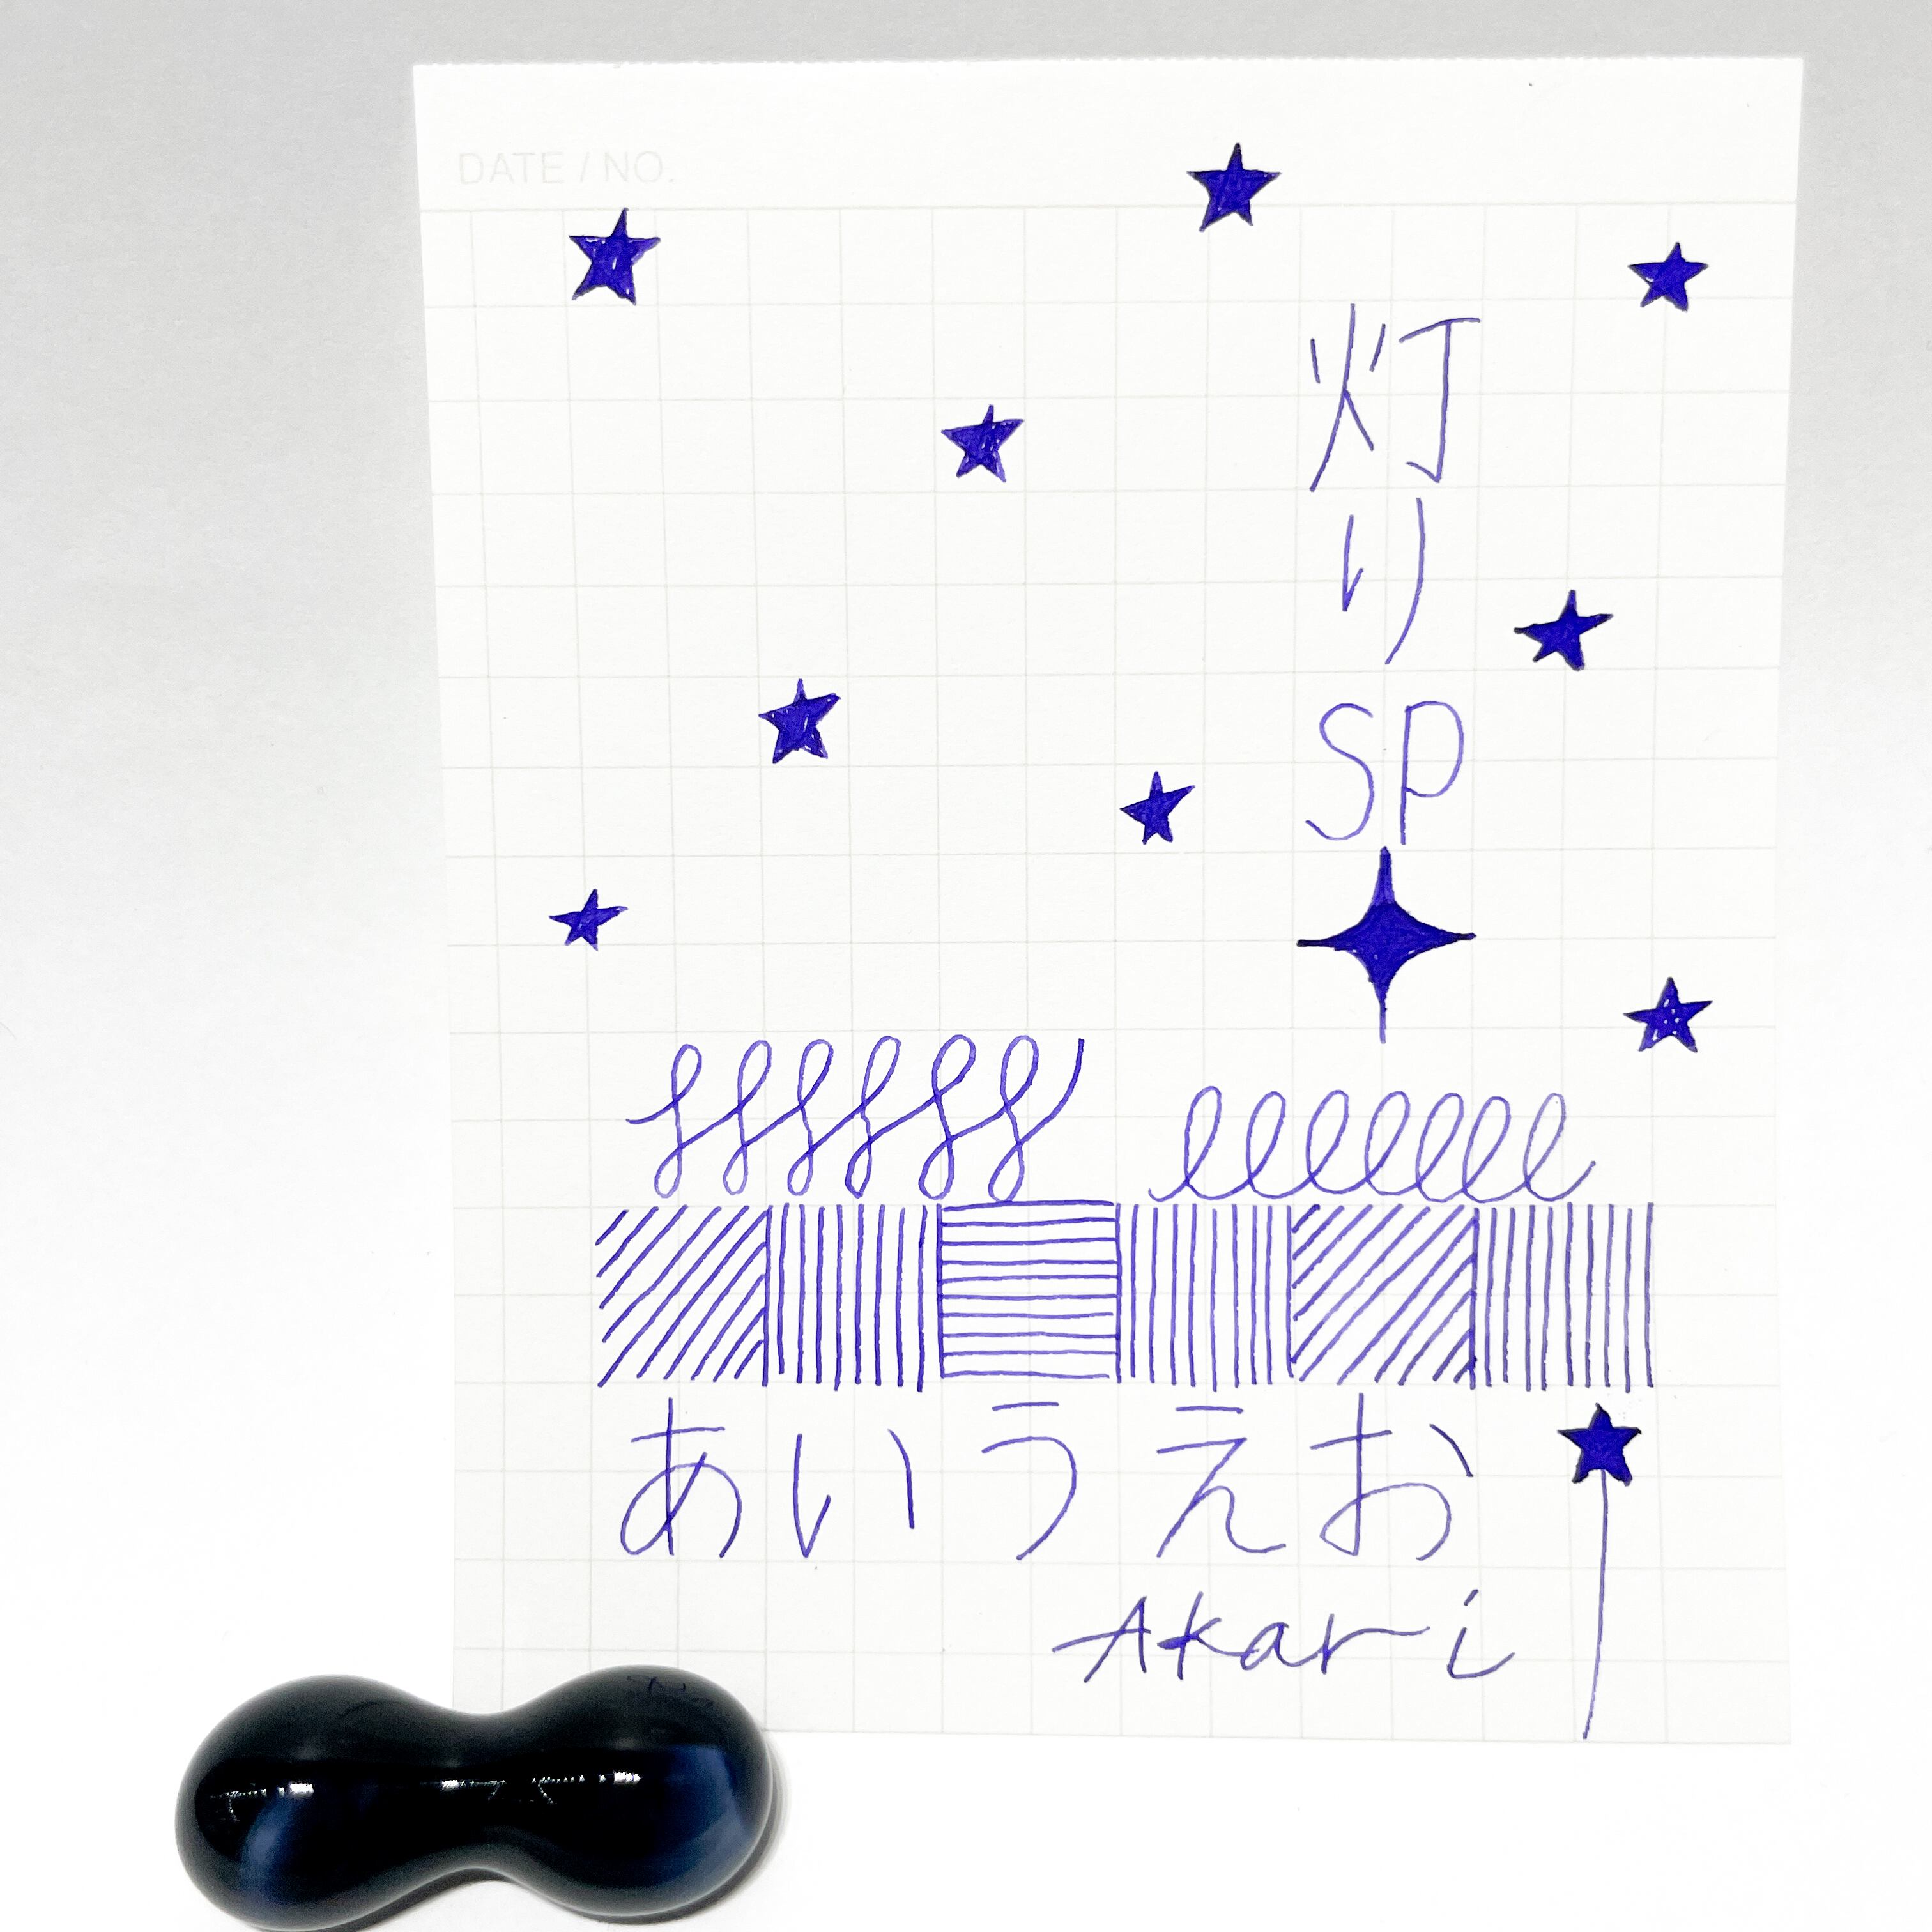 DATE / NO.
灯り
SP
あいうえお
Akari